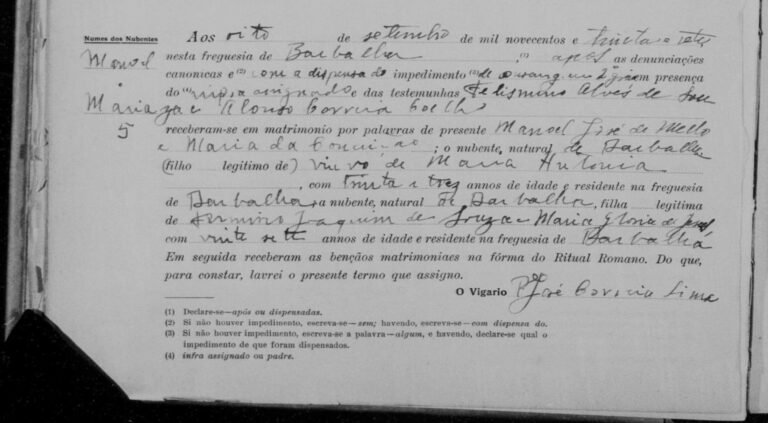 Nomes dos Nubentes
Manoel
e
Maria
5
Aos oito de setembro de mil novecentos e trinta e sete
nesta freguesia de Barbalha (1) após as denunciações
canonicas e (2) com a dispensa do impedimento (3) de consang. em presença
do (4) infra assignado e das testemunhas Felismino Alves de Sou
za e Alonso Correia Coelho
receberam-se em matrimonio por palavras de presente Manoel José de Mello
e Maria da Conceição; o nubente, natural de Barbalha
(filho legitimo de) viuvo de Maria Antonia
, com trinta e trez annos de idade e residente na freguesia
de Barbalha a nubente, natural de Barbalha, filha legitima
de Joaquim de Souza e Maria Gloria de Jesus
com vinte sete annos de idade e residente na freguesia de Barbalha
Em seguida receberam as bençãos matrimoniaes na fórma do Ritual Romano. Do que,
para constar, lavrei o presente termo que assigno.
O Vigario Pe José Correia Lima
(1) Declare-se—após ou dispensadas.
(2) Si não houver impedimento, escreva-se—sem; havendo, escreva-se—com dispensa do.
(3) Si não houver impedimento, escreva-se a palavra—algum, e havendo, declare-se qual o
impedimento de que foram dispensados.
(4) infra assignado ou padre.